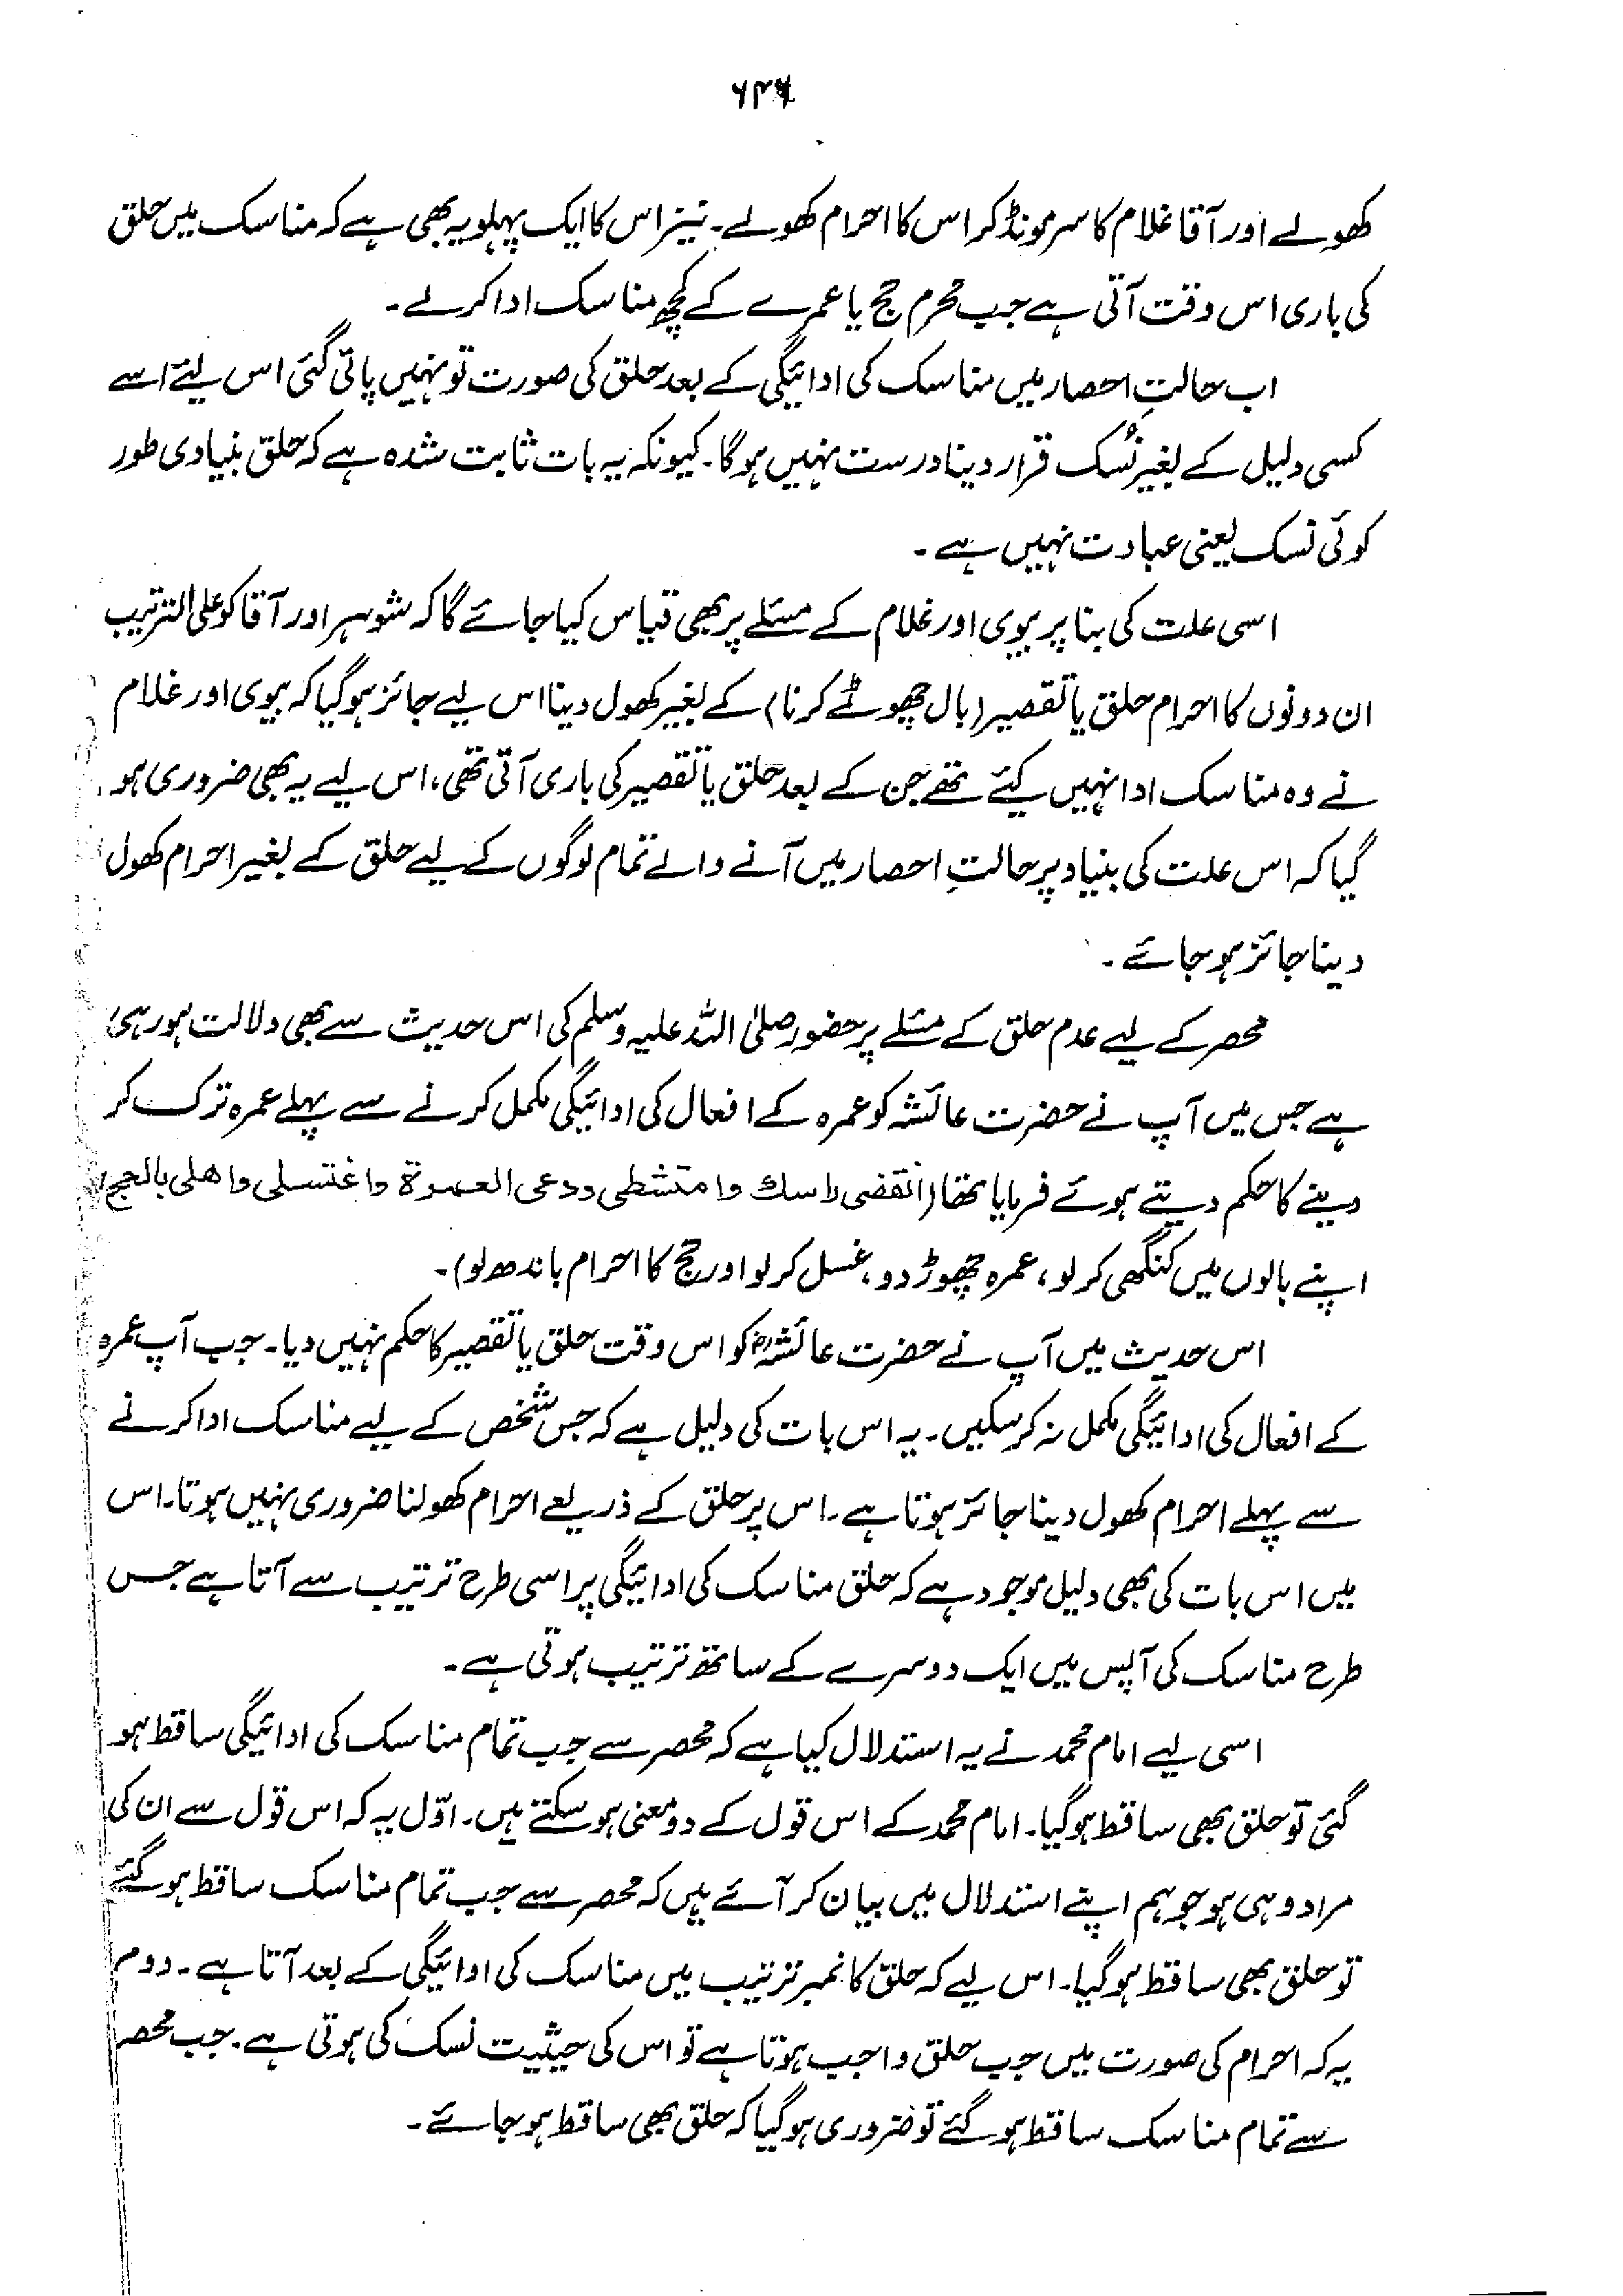 کھولے اور آقا غلام کا سر مونڈ کر اس کا احرام کھولے۔ نیز اس کا ایک پہلو یہ بھی ہے کہ مناسک میں حلق
کی باری اس وقت آتی ہے جب محرم حج یا عمرے کے کچھ مناسک ادا کر لے۔
اب حالتِ احصار میں مناسک کی ادائیگی کے بعد حلق کی صورت تو نہیں پائی گئی اس لیئے اسے
کسی دلیل کے بغیر نُسک قرار دینا درست نہیں ہوگا۔ کیونکہ یہ بات ثابت شدہ ہے کہ حلق بنیادی طور
کوئی نسک یعنی عبادت نہیں ہے۔
اسی علت کی بنا پر بیوی اور غلام کے مسئلے پر بھی قیاس کیا جائے گا کہ شوہر اور آقا کو علی الترتیب
ان دونوں کا احرام حلق یا تقصیر (بال چھوٹے کرنا) کے بغیر کھول دینا اس لیے جائز ہوگیا کہ بیوی اور غلام
نے وہ مناسک ادا نہیں کیئے تھے جن کے بعد حلق یا تقصیر کی باری آتی تھی، اس لیے یہ بھی ضروری ہو
گیا کہ اس علت کی بنیاد پر حالتِ احصار میں آنے والے تمام لوگوں کے لیے حلق کے بغیر احرام کھول
دینا جائز ہو جائے۔
محصر کے لیے عدم حلق کے مسئلے پر حضور صلی اللہ علیہ وسلم کی اس حدیث سے بھی دلالت ہو رہی
ہے جس میں آپ نے حضرت عائشہ کو عمرہ کے افعال کی ادائیگی مکمل کرنے سے پہلے عمرہ ترک کر
دینے کا حکم دیتے ہوئے فرمایا تھا (انقضی راسك وامتشطی ودعی العمرة واغتسلی واهلی بالحج،
اپنے بالوں میں کنگھی کر لو، عمرہ چھوڑ دو، غسل کر لو اور حج کا احرام باندھ لو)۔
اس حدیث میں آپ نے حضرت عائشہؓ کو اس وقت حلق یا تقصیر کا حکم نہیں دیا۔ جب آپ عمرہ
کے افعال کی ادائیگی مکمل نہ کر سکیں۔ یہ اس بات کی دلیل ہے کہ جس شخص کے لیے مناسک ادا کرنے
سے پہلے احرام کھول دینا جائز ہوتا ہے۔ اس پر حلق کے ذریعے احرام کھولنا ضروری نہیں ہوتا۔ اس
میں اس بات کی بھی دلیل موجود ہے کہ حلق مناسک کی ادائیگی پر اسی طرح ترتیب سے آتا ہے جس
طرح مناسک کی آپس میں ایک دوسرے کے ساتھ ترتیب ہوتی ہے۔
اسی لیے امام محمد نے یہ استدلال کیا ہے کہ محصر سے جب تمام مناسک کی ادائیگی ساقط ہو
گئی تو حلق بھی ساقط ہوگیا۔ امام محمد کے اس قول کے دو معنی ہو سکتے ہیں۔ اوّل یہ کہ اس قول سے ان کی
مراد وہی ہو جو ہم اپنے استدلال میں بیان کر آئے ہیں کہ محصر سے جب تمام مناسک ساقط ہو گئے
تو حلق بھی ساقط ہو گیا۔ اس لیے کہ حلق کا نمبر ترتیب میں مناسک کی ادائیگی کے بعد آتا ہے۔ دوم
یہ کہ احرام کی صورت میں جب حلق واجب ہوتا ہے تو اس کی حیثیت نسک کی ہوتی ہے۔ جب محصر
سے تمام مناسک ساقط ہو گئے تو ضروری ہو گیا کہ حلق بھی ساقط ہو جائے۔